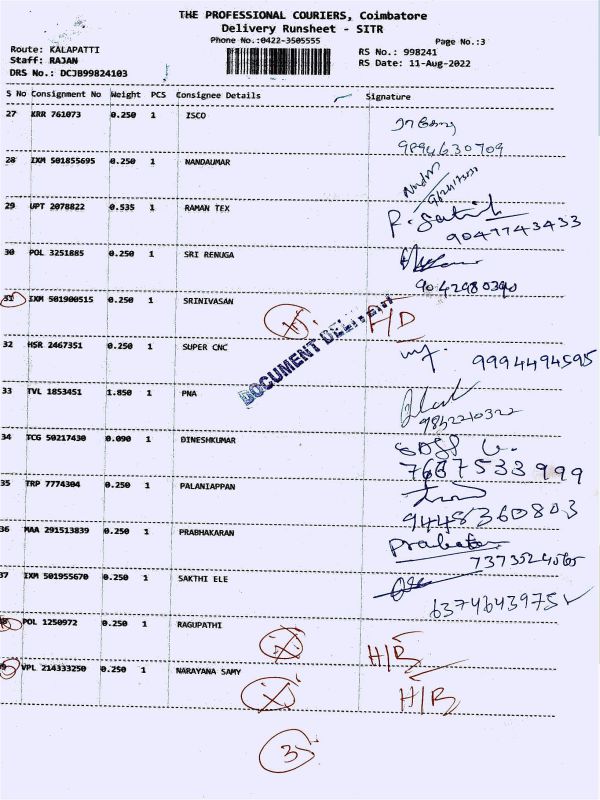 THE PROFESSIONAL COURIERS, Coimbatore
Delivery Runsheet - SITR
Phone No.:0422-3505555 Page No.:3
Route: KALAPATTI RS No.: 998241
Staff: RAJAN RS Date: 11-Aug-2022
DRS No.: DCJB99824103
S No Consignment No Weight PCS Consignee Details Signature
27 KRR 761073 0.250 1 ISCO
9894630709
28 IXM 501855695 0.250 1 NANDAUMAR
29 UPT 2078822 0.535 1 RAMAN TEX
9047743433
30 POL 3251885 0.250 1 SRI RENUGA
9042980390
31 IXM 501900515 0.250 1 SRINIVASAN
DOCUMENT DELIVERY
32 HSR 2467351 0.250 1 SUPER CNC
9994494595
33 TVL 1853451 1.850 1 PNA
9842210322
34 TCG 50217430 0.090 1 DINESHKUMAR
7667533999
35 TRP 7774304 0.250 1 PALANIAPPAN
9448360803
36 MAA 291513839 0.250 1 PRABHAKARAN
37 IXM 501955670 0.250 1 SAKTHI ELE
6374643975
POL 1250972 0.250 1 RAGUPATHI
H/B
VPL 214333250 0.250 1 NARAYANA SAMY
H/B
35